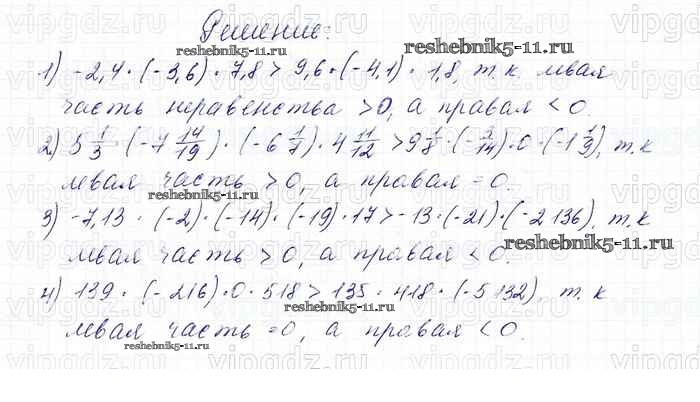 Решение:
reshebnik5-11.ru
reshebnik5-11.ru
1) -2,4 · (-3,6) · 7,8 > 9,6 · (-4,1) · 1,8, т.к. левая
часть неравенства > 0, а правая < 0.
2) 5 1/3 · (-7 14/19) · (-6 1/7) · 4 11/12 > 9 1/8 · (-3/14) · 0 · (-1 1/9), т.к
левая часть > 0, а правая = 0.
reshebnik5-11.ru
3) -7,13 · (-2) · (-14) · (-19) · 17 > -13 · (-21) · (-2 136), т.к
левая часть > 0, а правая < 0.
reshebnik5-11.ru
4) 139 · (-216) · 0 · 518 > 135 · 418 · (-5 132), т.к
reshebnik5-11.ru
левая часть = 0, а правая < 0.
reshebnik5-11.ru